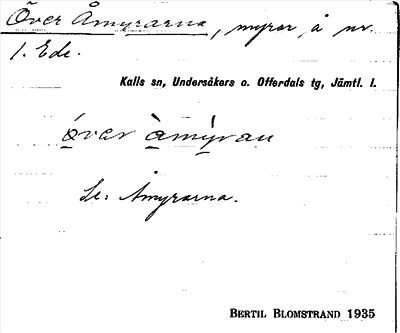 Över Åmyrarna, myrar, å nr.
1. Ede.
Kalls sn, Undersåkers o. Offerdals tg, Jämtl. l.
òver àmýran
Se: Åmyrarna.
BERTIL BLOMSTRAND 1935